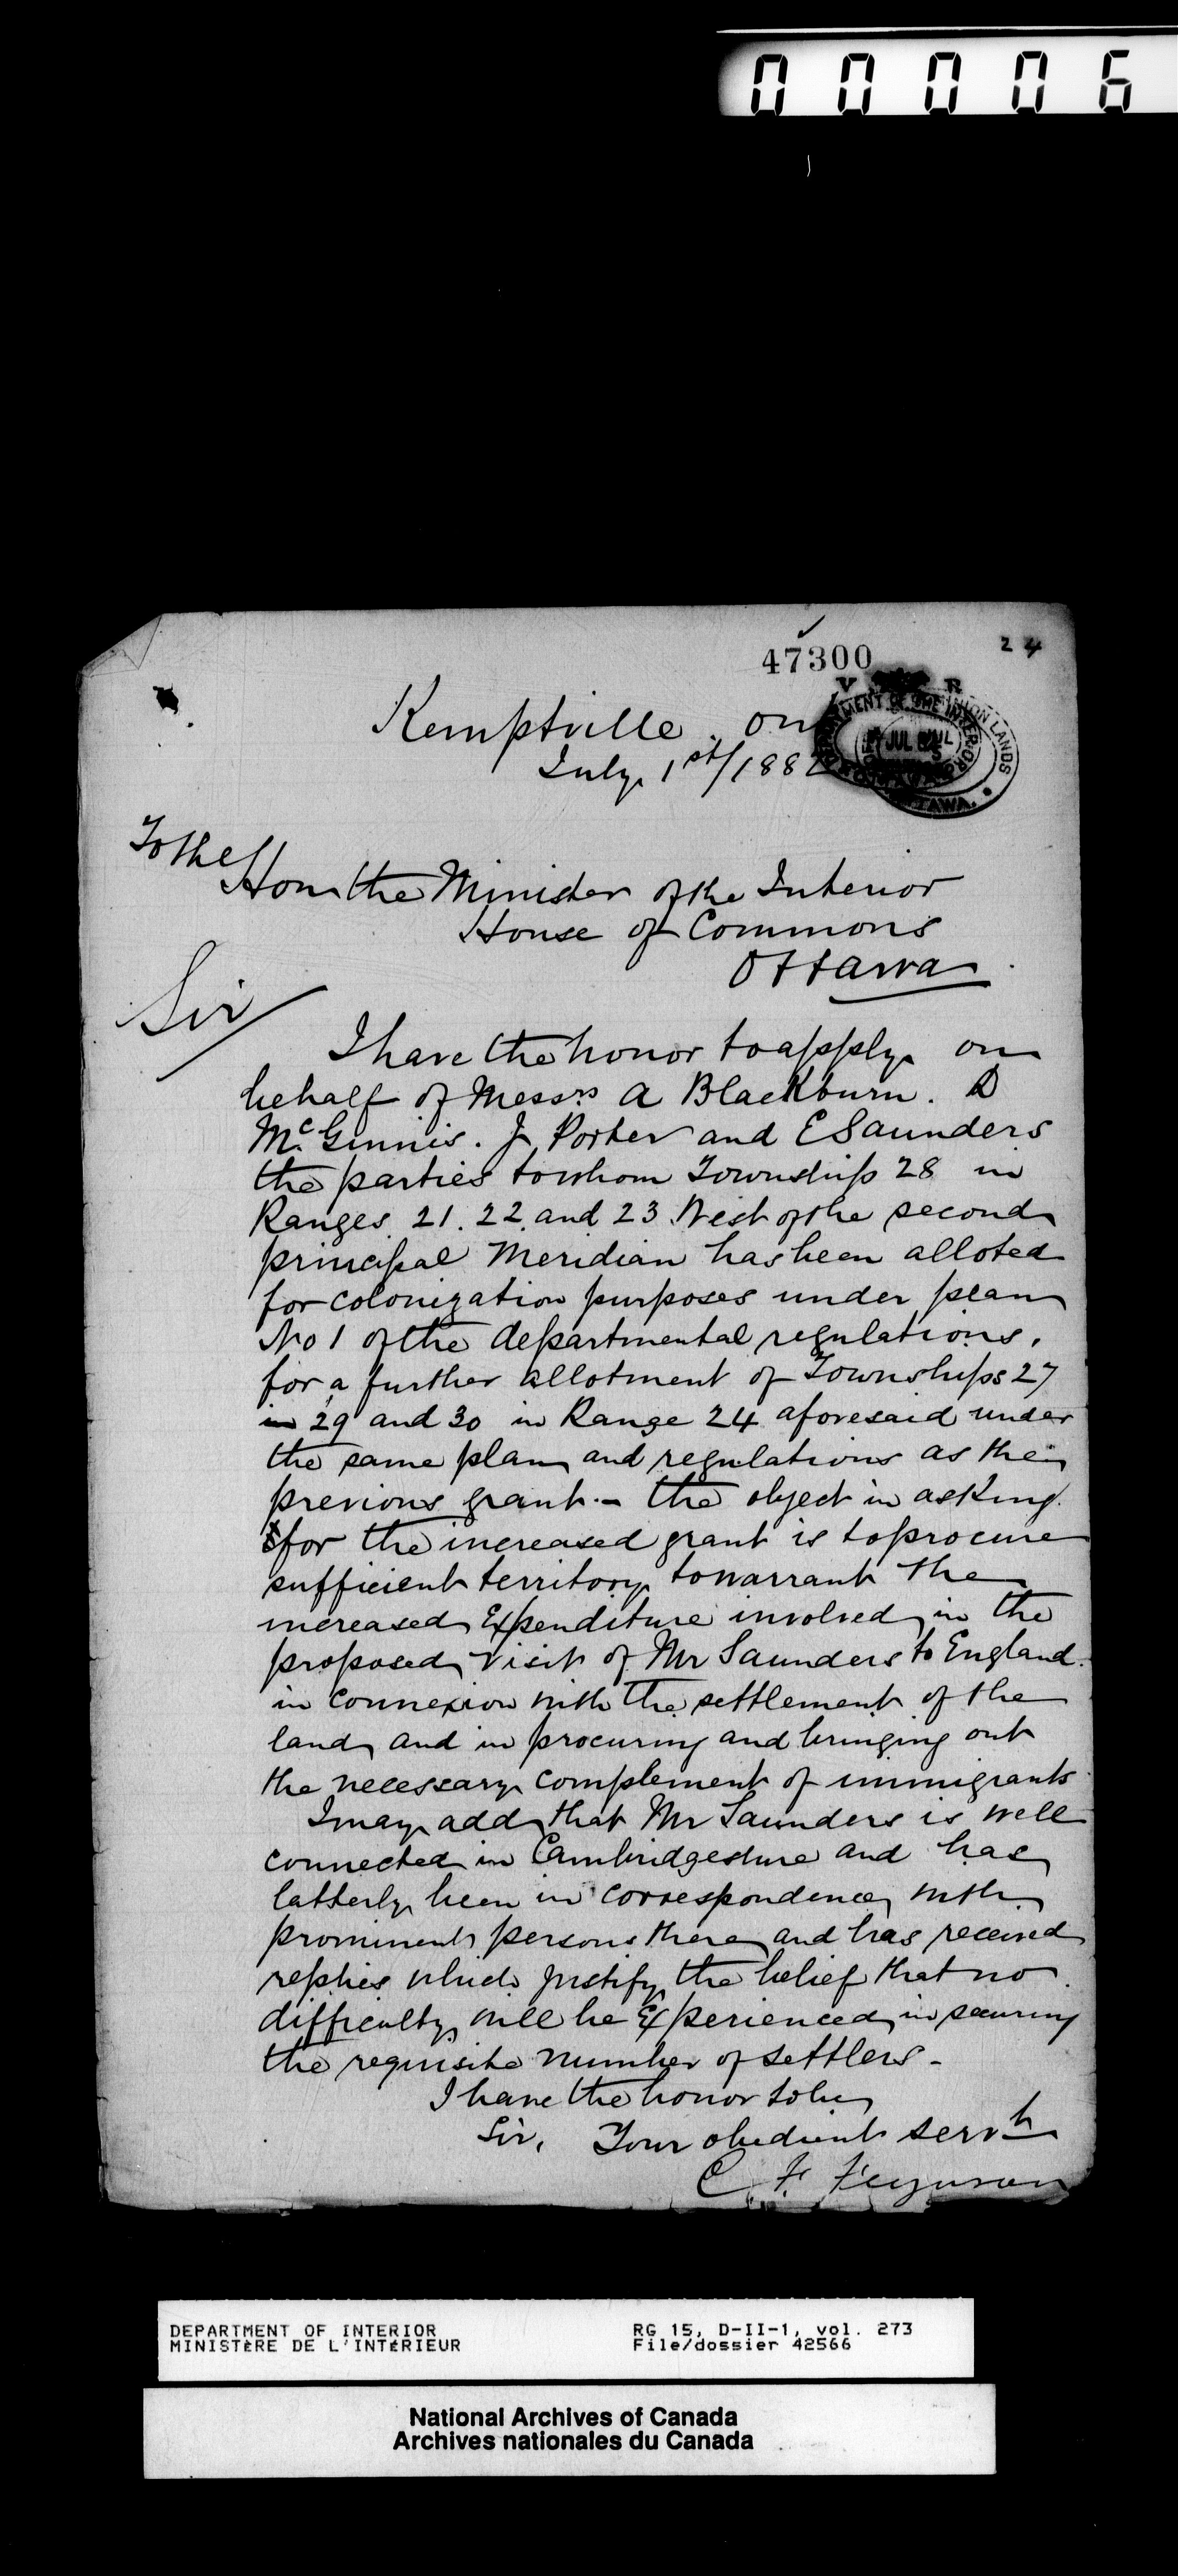 00006
47300
24
V R
Kemptville. Ont
July 1st/1882
To the
Hon the Minister of the Interior
House of Commons
Ottawa
Sir
I have the honor to apply on
behalf of Messrs A Blackburn. D
McGinnis. J Porter and E Saunders
the parties to whom Township 28 in
Ranges 21. 22 and 23 West of the second
principal Meridian has been alloted
for colonization purposes under plan
No 1 of the departmental regulations,
for a further allotment of Townships 27
in 29 and 30 in Range 24 aforesaid under
the same plan and regulations as their
previous grant. – the object in asking
for the increased grant is to procure
sufficient territory to warrant the
increased Expenditure involved in the
proposed visit of Mr Saunders to England.
in connexion with the settlement of the
land and in procuring and bringing out
the necessary complement of immigrants
I may add that Mr Saunders is well
connected in Cambridgeshire and has
latterly been in correspondence with
prominent persons there and has received
replies which justify the belief that no
difficulty will be Experienced in securing
the requisite number of settlers –
I have the honor to be
Sir, Your obedient servt
C. F. Ferguson
DEPARTMENT OF INTERIOR
MINISTÈRE DE L'INTÉRIEUR
RG 15, D-II-1, vol. 273
File/dossier 42566
National Archives of Canada
Archives nationales du Canada